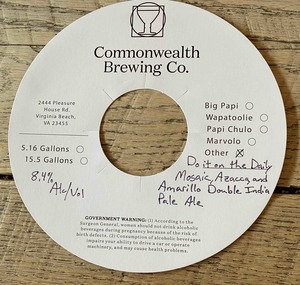 Commonwealth
Brewing Co.
2444 Pleasure
House Rd.
Virginia Beach,
VA 23455
5.16 Gallons
15.5 Gallons
8.4%
Alc/Vol
Big Papi
Wapatoolie
Papi Chulo
Marvolo
Other X
Do it on the Daily
Mosaic, Azacca, and
Amarillo Double India
Pale Ale
GOVERNMENT WARNING: (1) According to the
Surgeon General, women should not drink alcoholic
beverages during pregnancy because of the risk of
birth defects. (2) Consumption of alcoholic beverages
impairs your ability to drive a car or operate
machinery, and may cause health problems.